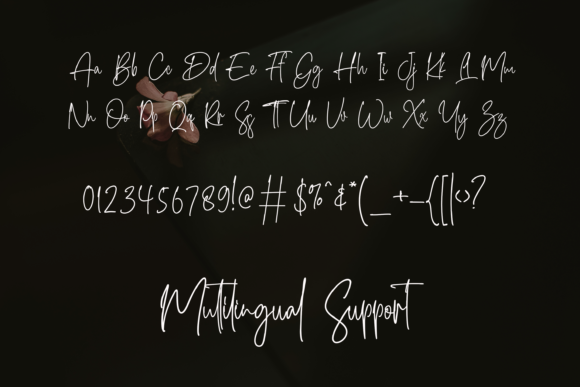 Aa Bb Cc Dd Ee Ff Gg Hh Ii Jj Kk Ll Mm
Nn Oo Pp Qq Rr Ss Tt Uu Vv Ww Xx Yy Zz
0123456789!@#$%^&*(_+-{[|<>?
Multilingual Support